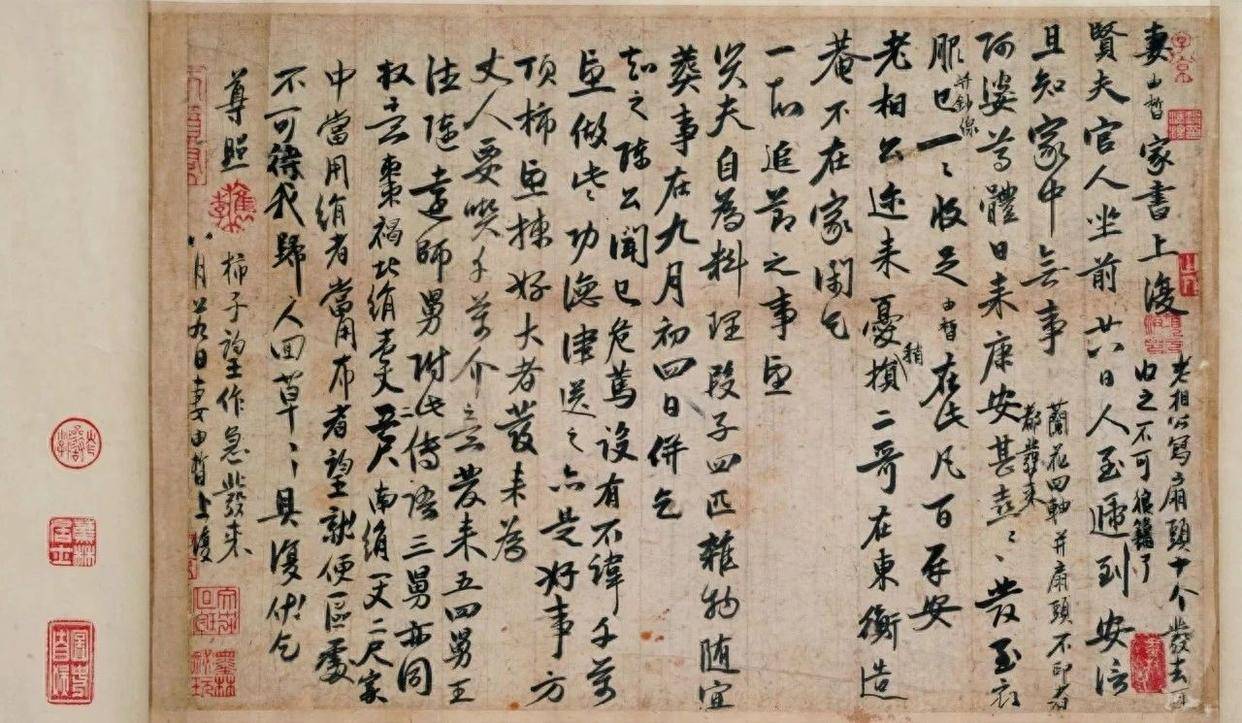 妻由皙家書上復
老相公寫扇頭十个發去可
收之不可狼籍了
賢夫官人坐前廿八日人至遞到安信
且知家中無事
蘭花四軸并扇頭不印者
都發来
阿婆尊體日来康安甚喜〻發至衣
服已并針線一〻收足由皙在此凡百存安
老相公迩来稍憂損二哥在東衡造
菴不在家閑乞
一 追節之事望
賢夫自為料理段子四匹雜物随宜
葬事在九月初四日併乞
知之陸公聞已危篤設有不諱千萬
望做些功德津送之亦是好事方
頂柿望揀好大者發来為
丈人要喫千萬介意發来五四舅王
法 師舅附此二傳語三舅亦同
棗褐北絹壹丈五尺南絹一丈二尺家
中當用絹者當用布者望就便區處
不可待我歸人回草〻具復伏乞
尊照
柿子望作急發来
八月廿九日妻由皙上復